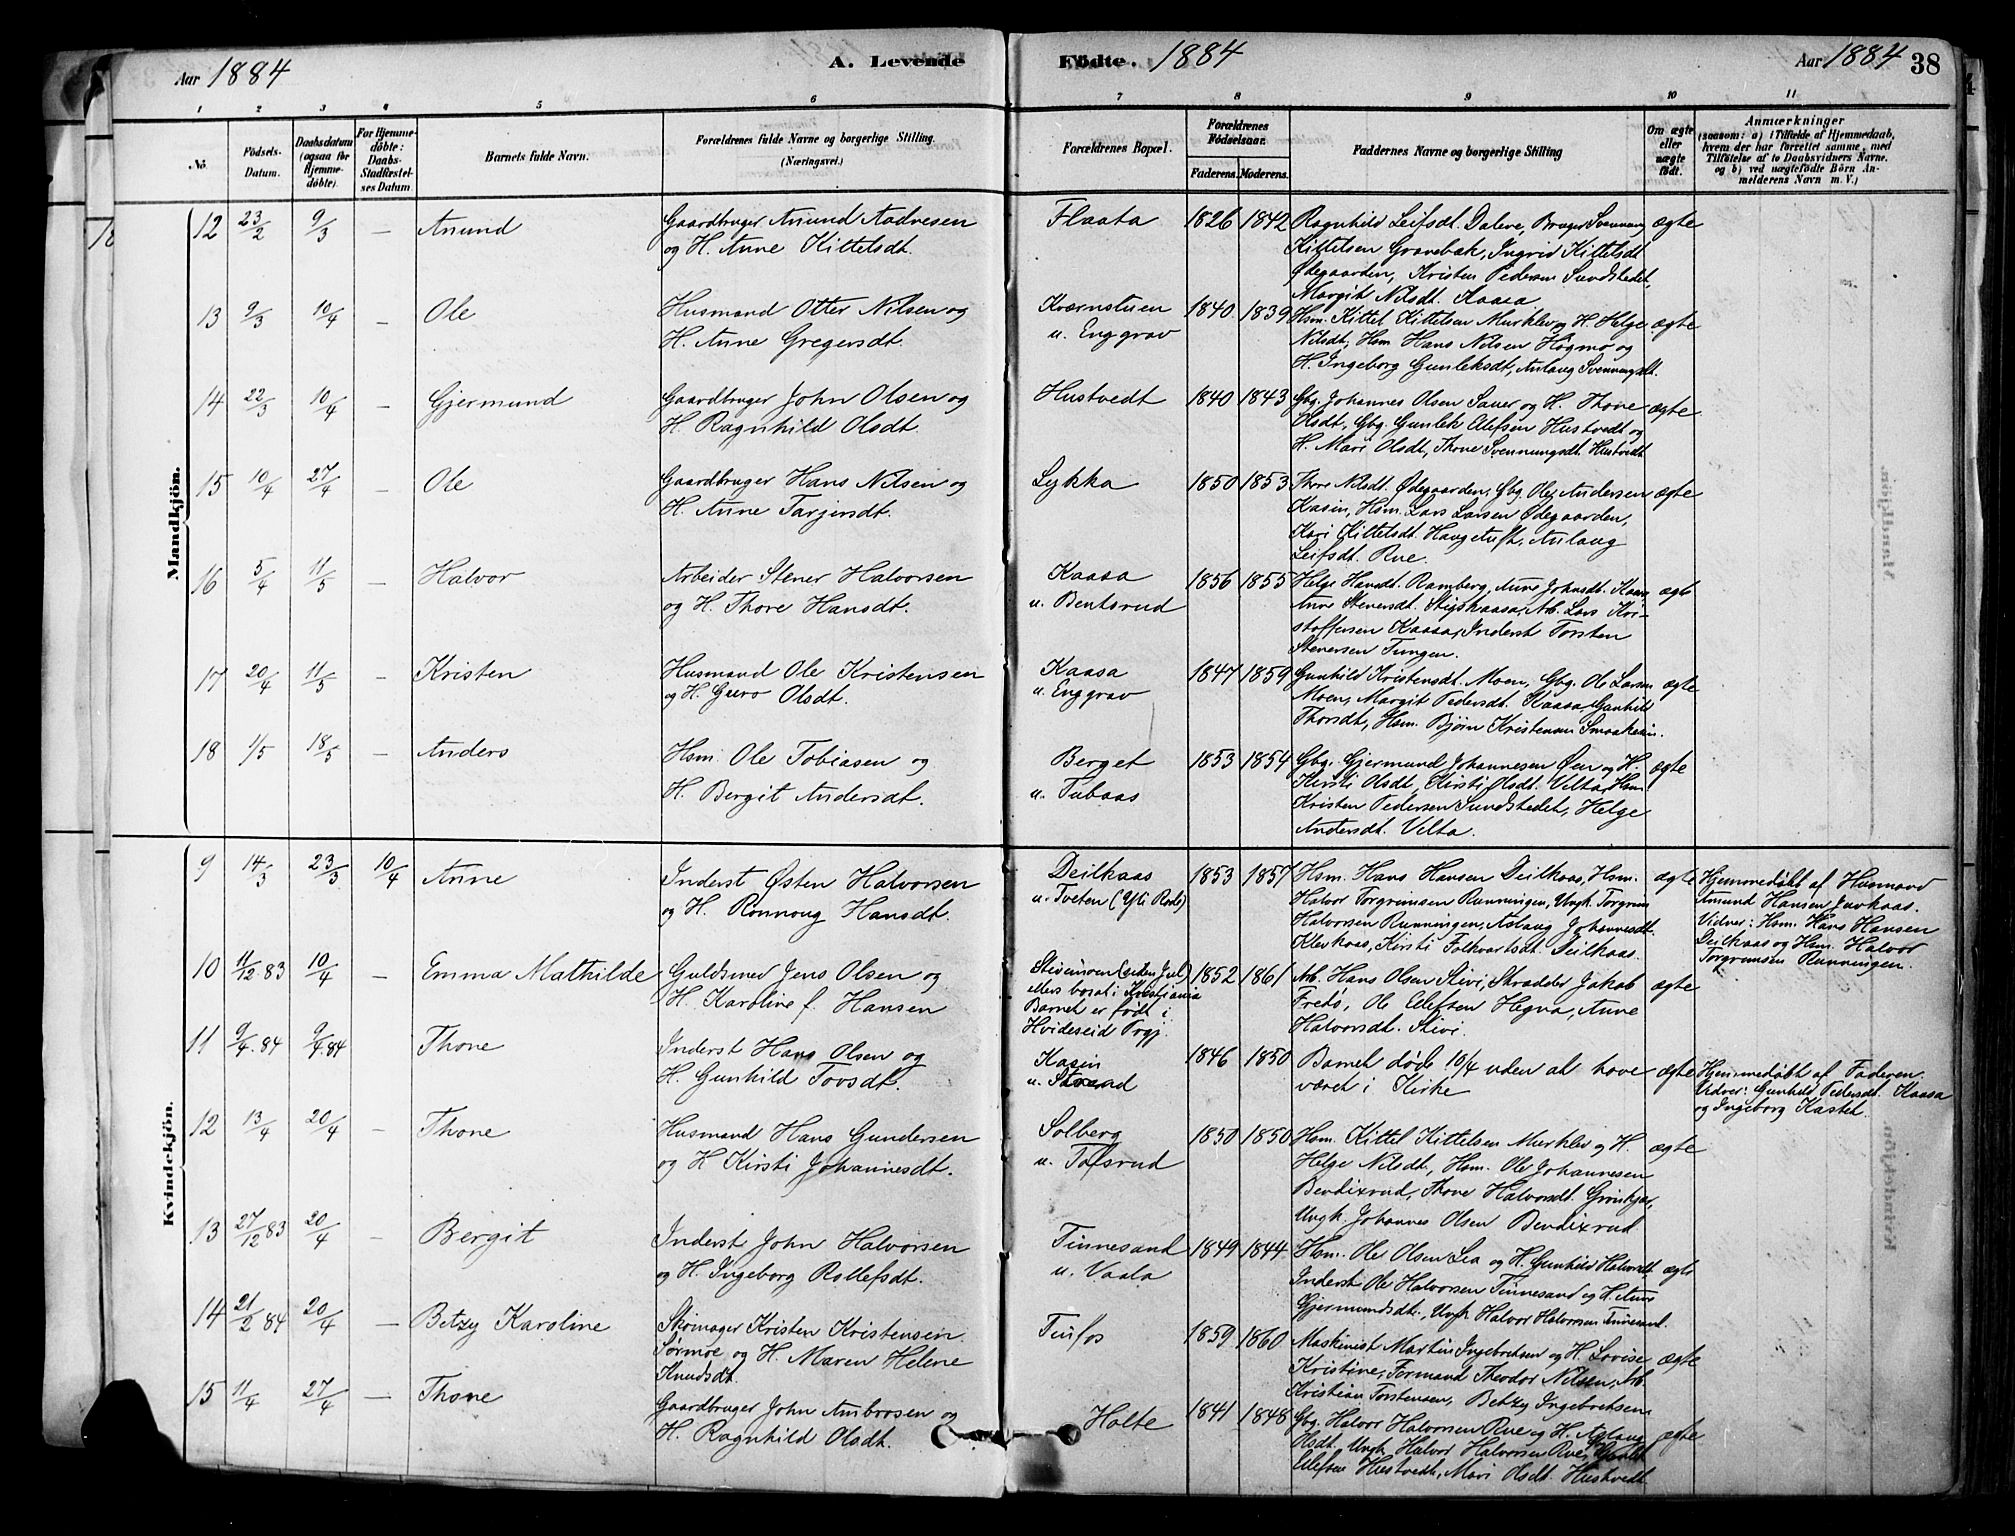 Aar 1884
A. Levende Födte. 1884
Aar 1884 38
1 2 3 4 5 6 7 8 9 10 11
No.
Födsels-Datum.
Daabsdatum (ogsaa for Hjemmedöbte).
For Hjemmedöbte: Daabs-Stadfæstelses Datum
Barnets fulde Navn.
Forældrenes fulde Navne og borgerlige Stilling (Næringsvei.)
Forældrenes Bopæl.
Forældrenes Födselsaar.
Faderens. Moderens.
Faddernes Navne og borgerlige Stilling
Om ægte eller uægte födt.
Anmærkninger
(saasom: a) i Tilfælde af Hjemmedaab, hvem der har forrettet samme, med Tilföielse af to Daabsvidners Navne, og b) ved uægtefödte Börn Anmelderens Navn m. V.)
Mandkjön.
12 23/2 9/3 — Anund
Gaardbruger Anund Aadnesen
og H. Anne Kittelsdt.
Flaata 1826 1842
Ragnhild Leifsdt. Dalene, Bruger Svennung
Kittelsen Gravebak, Ingrid Kittelsdt
Ødegaarden, Kristen Pedersen Sundstedet,
Margit Nilsdt. Kaasa
ægte
13 9/3 10/4 — Ole
Husmand Otter Nilsen og
H. Anne Gregersdt.
Kværnstuen
u. Enggrav
1840. 1839
Hsm. Kittel Kittelsen Murklev og H. Helge
Nilsdt, Hsm Hans Nilsen Høgmo og
H. Ingeborg Gunleksdt, Aslaug Svennungsdt.
ægte
14 22/3 10/4 — Gjermund
Gaardbruger John Olsen og
H. Ragnhild Olsdt.
Hustvedt 1840 1843
Gbg. Johannes Olsen Sauer og H. Thone
Olsdt, Gbg. Gunlek Olefsen Hustvedt og
H. Mari Olsdt, Thone Svennungsdt Hustvedt
ægte
15 10/4 27/4 — Ole
Gaardbruger Hans Nilsen og
H. Anne Tarjersdt.
Lykka 1850 1853
Thone Nilsdt. Ødegaarden, Gbg. Ole Andersen
Kasin, Hsm. Lars Larsen Ødegaarden,
Kari Kittelsdt. Haugetuft, Aslaug
Leifsdt. Rue.
ægte
16 5/4 11/5 — Halvor
Arbeider Stener Halvorsen
og H. Thore Hansdt.
Kaasa
u. Bentsrud
1856 1855
Helge Hansdt. Ramberg, Anne Johnsdt. Kaasa
Anne Stenersdt. Stigskaasa, Arb. Lars Kri-
stoffersen Kaasa, Inderst Torsten
Stenersen Tungen.
ægte
17 20/4 11/5 — Kristen
Husmand Ole Kristensen
og H. Guro Olsdt.
Kaasa
u. Enggrav
1847 1859
Gunhild Kristensdt. Moen, Gbg. Ole Larsen
Moen, Margit Pedersdt. Kaasa, Gunhild
Thorsdt, Hsm. Bjørn Kristensen
ægte
18 1/5 18/5 — Anders
Hsm. Ole Tobiasen og
H. Bergit Andersdt.
Berget
u. Tubaas
1853 1854
Gbg. Gjermund Johannesen Øen og H.
Kirsti Olsdt, Kirsti Olsdt. Velta, Hsm.
Kristen Pedersen Sundstedet, Helge
Andersdt. Velta.
ægte
Kvindekjön.
9 14/3 23/3 10/4 Anne
Inderst Østen Halvorsen
og H. Ronnoug Hansdt.
Deilkaas
u. Tveten
1853 1857
Hsm. Hans Hansen Deilkaas, Hsm.
Halvor Torgrimsen Runningen, Ungk. Torgrim
Halvorsen Runningen, Aslaug Johannesdt.
Klevkaas, Kirsti Folkvartsdt. Deilkaas.
ægte
Hjemmedøbt af Husmand
Amund Hansen Juvkaas.
Vidner: Hsm. Hans Hansen
Deilkaas og Hsm. Halvor
Torgrimsen Runningen.
10 11/12 83 10/4 — Emma Mathilde
Guldsmed Jens Olsen og
H. Karoline f. Hansen
Stivimoen (siden Jul)
ellers bosat i Kristiania
Barnet er født i
Hvideseid Prgj.
1852 1861
Arb. Hans Olsen Stivi, Skrædder Jakob
Fredø, Ole Ellefsen Hegna, Anne
Halvorsdt. Stivi.
ægte
11 9/4. 84 9/4. 84 Thone
Inderst Hans Olsen og
H. Gunhild Tovsdt.
Kasin
u.
1846 1850
Barnet døde 10/4 uden at have
været i Kirke
ægte
Hjemmedøbt af Faderen.
Vidner: Gunhild Pedersdt. Kaasa
og Ingeborg Kastet.
12 13/4 20/4 — Thone
Husmand Hans Gundersen
og H Kirsti Johannesdt.
Solberg
u. Tofsrud
1850 1850
Hsm. Kittel Kittelsen Murklev og H.
Helge Nilsdt., Hsm. Ole Johannesen
Bendixrud, Thone Halvorsdt. Grønkjær,
Ungk. Johannes Olsen Bendixrud
ægte
13 27/12 83 20/4 — Bergit
Inderst John Halvorsen
og H. Ingeborg Rollefsdt.
Tinnesand
u. Vaala
1849 1844
Hsm. Ole Olsen Lia og H. Gunhild Halvorsdt,
Inderst Ole Halvorsen Tinnesand og H. Anne
Gjermundsdt., Ungk Halvor Halvorsen Tinnesand.
ægte
14 21/2 84 20/4 — Betzy Karoline
Skomager Kristen Kristensen
Sørmoe og H. Maren Helene
Knudsdt.
Tinfos 1859 1860
Maskinist Martin Ingebretsen og H. Lovise
Kristine, Formand Theodor Nilsen, Arb.
Kristian Torstensen, Betzy Ingebretsen
ægte
15 11/4 27/4 — Thone
Gaardbruger John Ambrosen og
H. Ragnhild Olsdt.
Holte 1841 1848
Gbg. Halvor Halvorsen Rue og H. Aslaug
Olsdt. Ungk. Halvor Halvorsen Rue,
Ellefsen Hustvedt, Mari Olsdt. Hustvedt
ægte